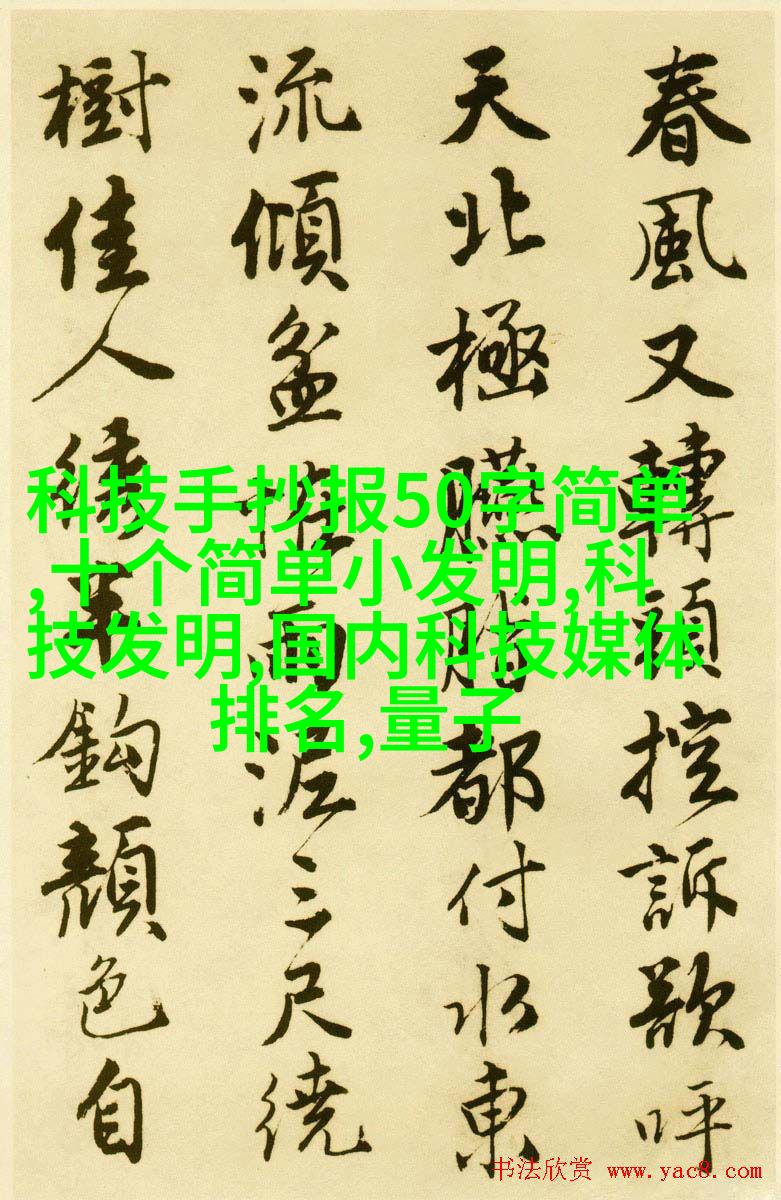 春風又轉頭控訴欲呼
天北極臙脂都付水東
流傾盆雨泥三尺繞
樹佳人繡半鉤顏色自
科技手抄报50字简单
,十个简单小发明,科
技发明,国内科技媒体
排名,量子
书法欣赏 www.yac8.com